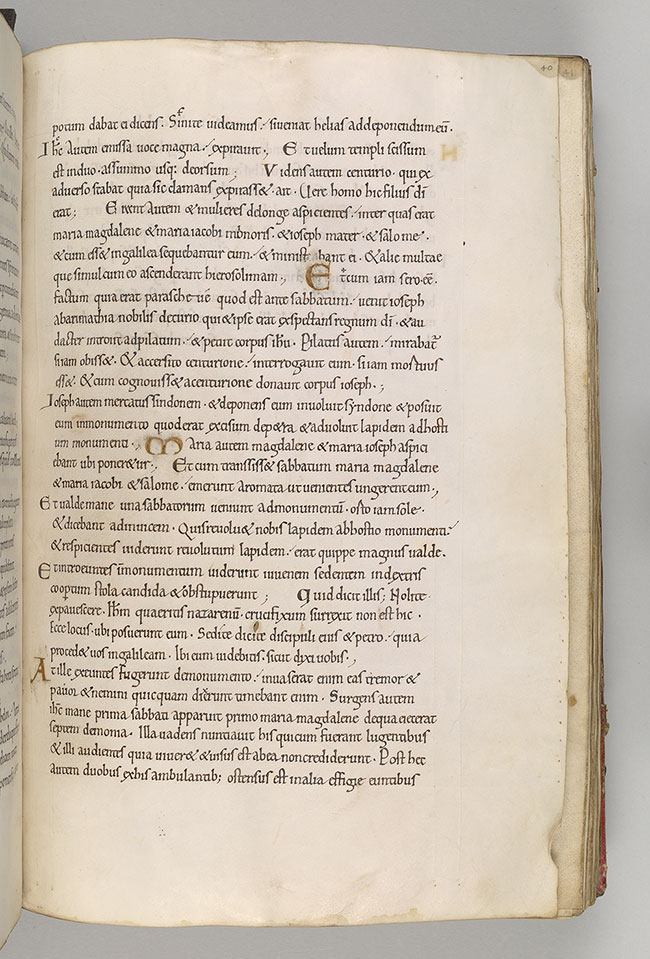 40
potum dabat ei dicens. Sinite videamus. si veniat helias ad deponendum eū.
Ihc̄ Autem emissa voce magna. expiravit. Et velum templi scissum
est in duo. a ssummo usq; deorsum; Videns autem centurio. qui ex
adverso stabat quia sic clamans expirass& . ait. Vere homo hic filius dī
erat; Erant Autem & mulieres de longe aspicientes. inter quas erat
maria magdalene & maria iacobi minoris. & ioseph mater. & salome.
& cum ess& in galilea sequebantur eum. & minist bant ei. & aliae multae
que simul cum eo ascenderant hierosolimam; Et cum iam sero. eē.
factum quia erat parasche ve quod est ante sabbatum. venit ioseph
ab arimathia nobilis decurio qui & ipse erat exspectans regnum dī. & au
dacter introiit ad pilatum. & petiit corpus ihū. Pilatus autem. mirabat
si iam obiss&. & accersito centurione. interrogavit eum. si iam mortuus
ess&. & cum cognoviss& a centurione donavit corpus ioseph.;
Ioseph autem mercatus sindonem. & deponens eum involvit syndone & posuit
eum in monumento quod erat excisum de p&ra & advolvit lapidem ad hosti
um monumenti. Maria autem magdalene & maria ioseph aspici
ebant ubi poner&ur.; Et cum transiss& sabbatum maria magdalene
& maria iacobi & salome. emerunt aromata ut venientes ungerent eum.,
Et valde mane una sabbatorum veniunt ad monumentū. orto iam sole.
& dicebant ad invicem. Quis revolv& nobis lapidem ab hostio monumenti.
& respicientes viderunt revolutum lapidem. erat quippe magnus valde.
Et introeuntes in monumentum viderunt iuvenem sedentem in dextris
coopertum stola candida & obstupuerunt; Qui dicit illis; Nolite
expavescere. Ihm̄ quaeritis nazarenū. crucifixum surrexit non est hic.
Ecce locus. ubi posuerunt eum. Sed ite dicite discipuli eius & petro. quia
proced& vos in galileam. Ibi eum videbitis. sicut dixi vobis.,
At ille exeuntes fugerunt de monumento. invaserat enim eas tremor &
pavor. & nemini quicquam dixerunt timebant enim. Surgens autem
ihc̄ mane prima sabbati apparuit primo maria magdalene de qua eiecerat
septem demonia. Illa vadens nuntiavit his qui cum fuerant lugentibus
& illi audientes quia viver& & visus est ab ea non crediderunt. Post hec
autem duobus ex his ambulantib; ostensus est in alia effigie euntibus